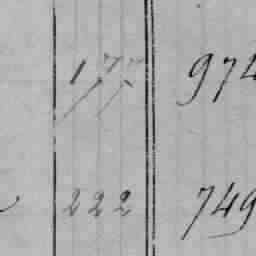 177 974
222 749